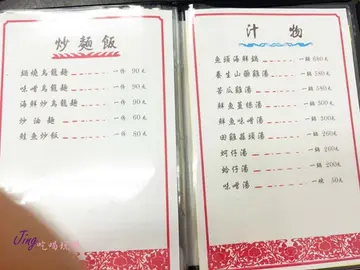 炒麵飯
鍋燒烏龍麵 一份 90元
味噌烏龍麵 一份 90元
海鮮炒烏龍麵 一份 90元
炒油麵 一份 60元
鮭魚炒飯 一份 80元
汁物
魚頭海鮮鍋 一鍋 680元
養生山藥雞湯 一鍋 580元
苦瓜雞湯 一鍋 580元
鮮魚薑絲湯 一鍋 300元
鮮魚味噌湯 一鍋 300元
田雞蒜頭湯 一鍋 260元
蚵仔湯 一鍋 260元
蛤仔湯 一鍋 200元
味噌湯 一鍋 50元
Jing吃喝玩樂